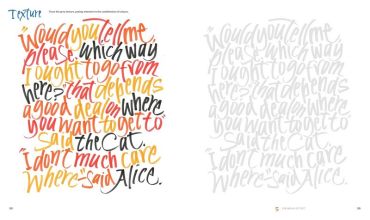 Texture
"Would you tell me
please, which way
I ought to go from
here?" "that depends
a good deal on where
you want to get to"
said the Cat.
"I don't much care
Where" said Alice.
"Would you tell me
please, which way
I ought to go from
here?" "that depends
a good deal on where
you want to get to"
said the Cat.
"I don't much care
Where" said Alice.